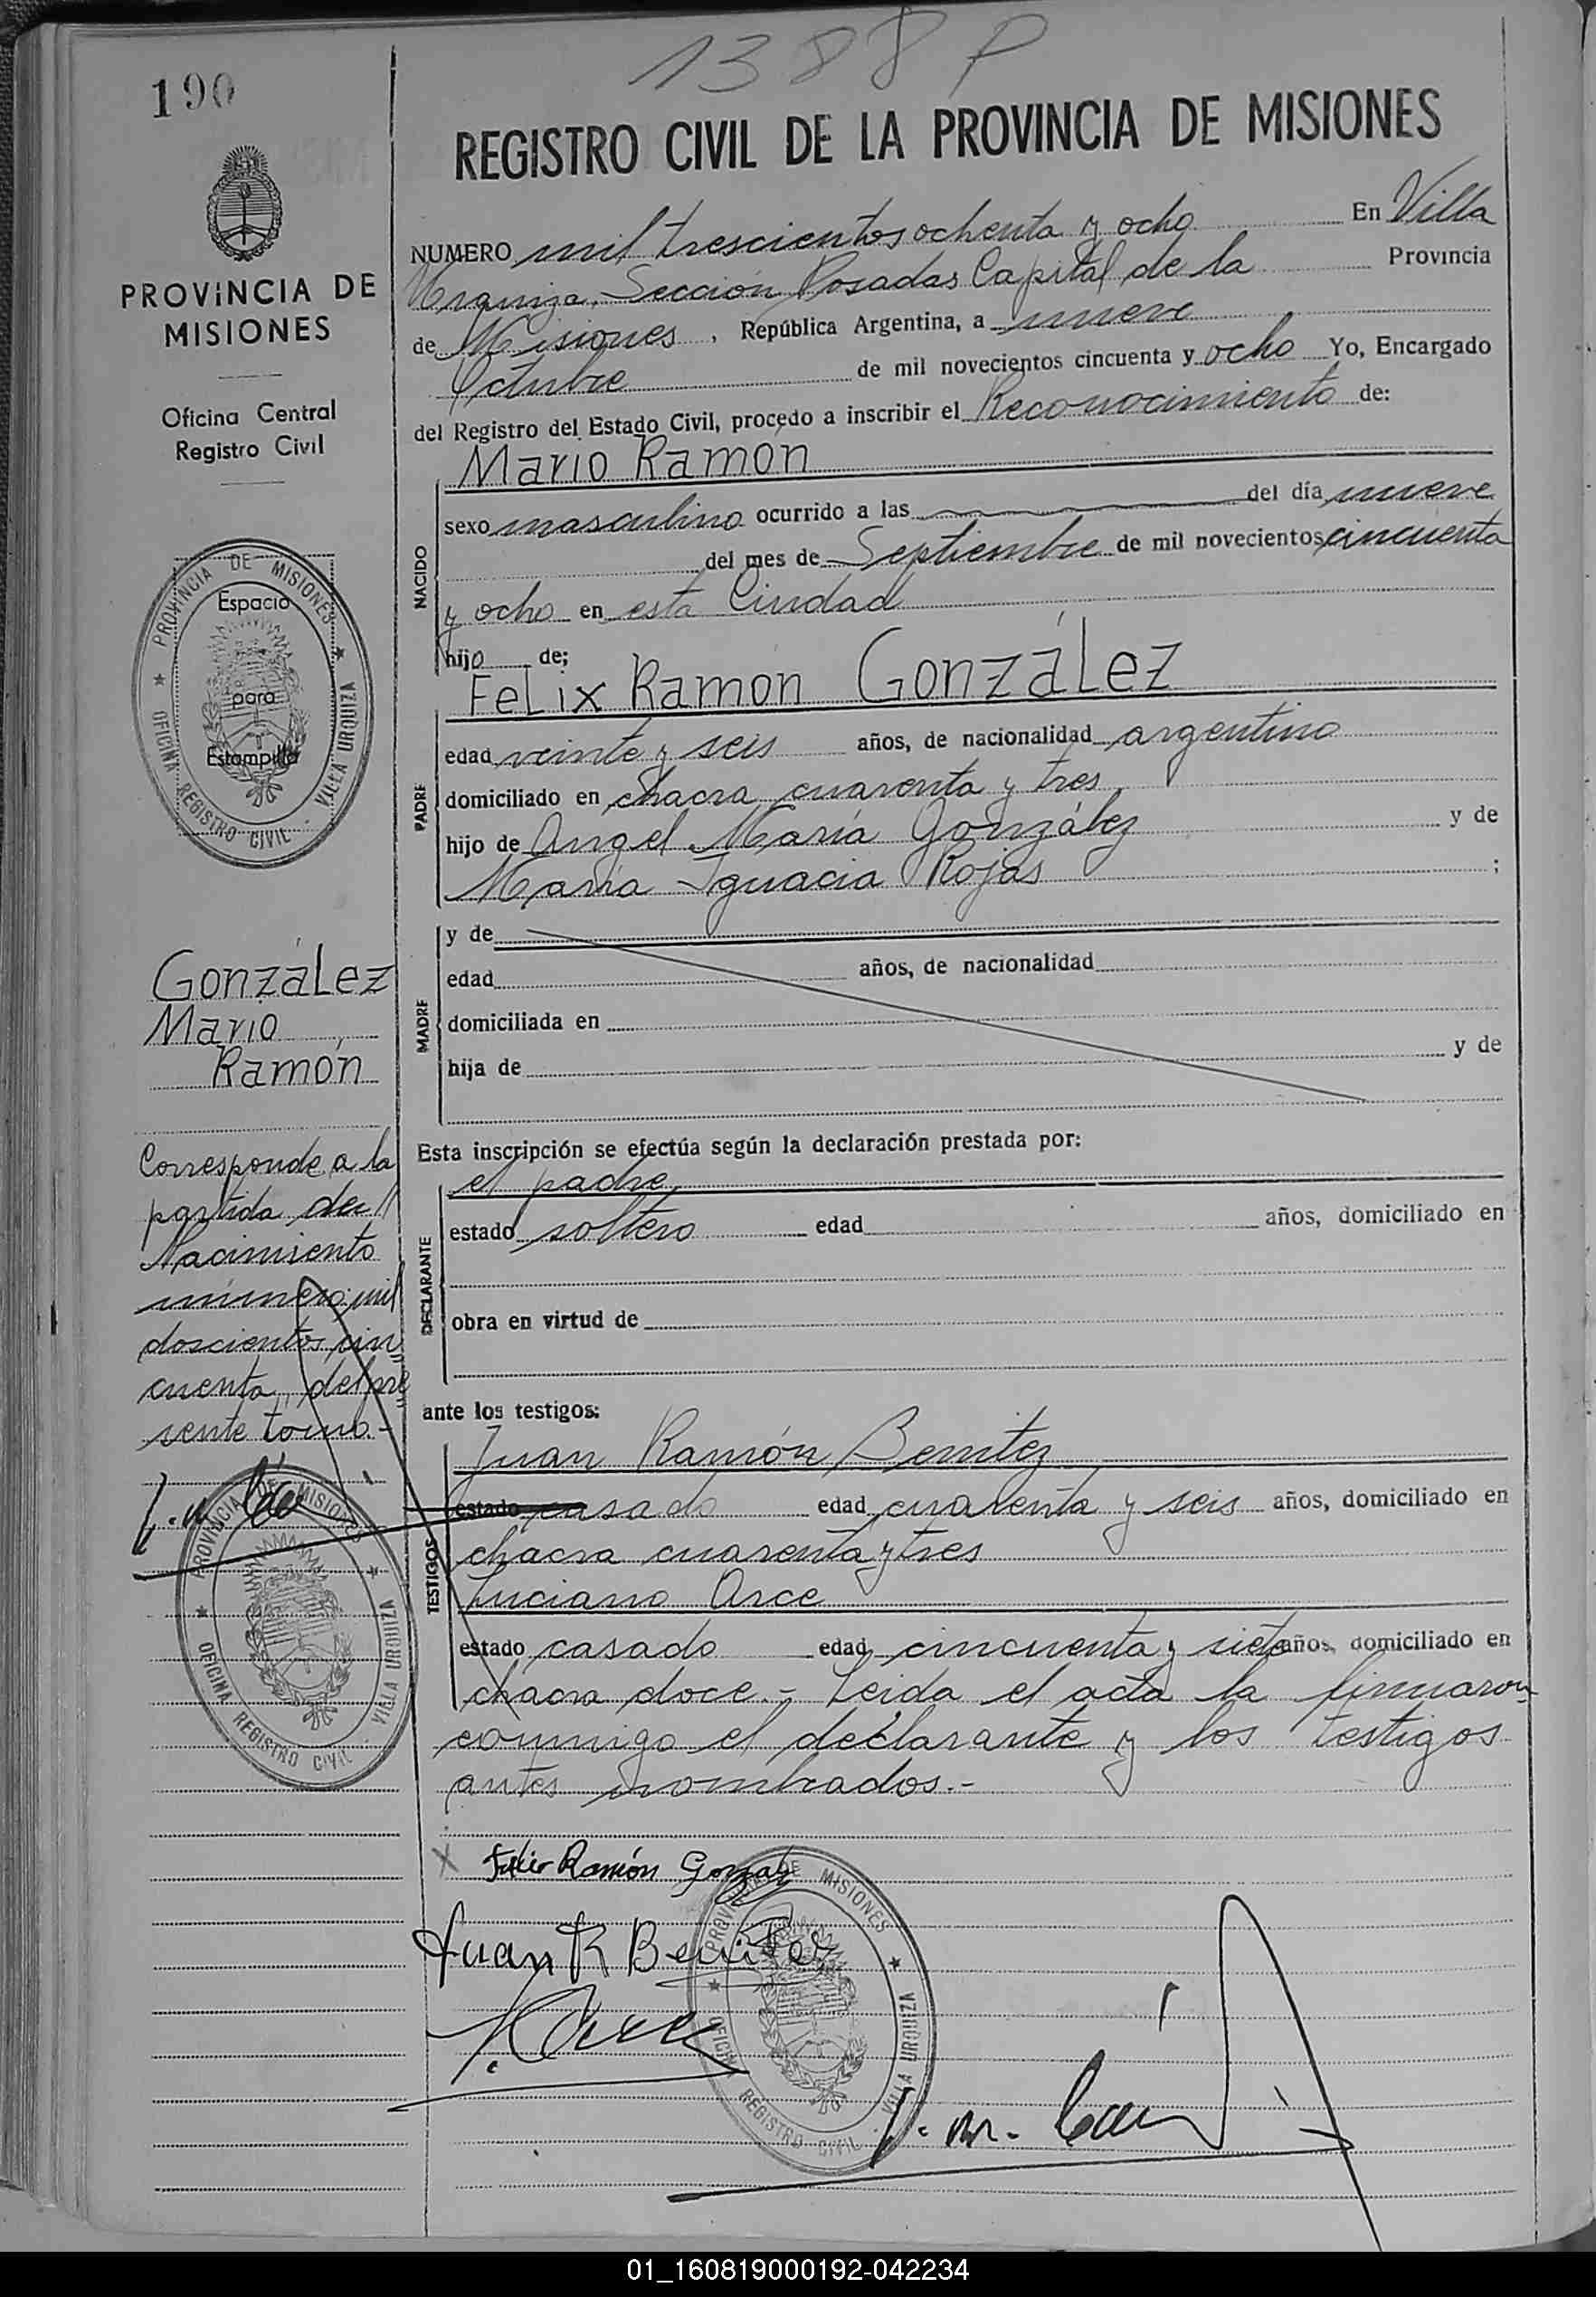 1388 P
190
REGISTRO CIVIL DE LA PROVINCIA DE MISIONES
NUMERO mil trescientos ochenta y ocho En Villa
Urquiza, Sección Posadas Capital de la Provincia
de Misiones, República Argentina, a nueve
Octubre de mil novecientos cincuenta y ocho Yo, Encargado
del Registro del Estado Civil, procedo a inscribir el Reconocimiento de:
Mario Ramón
NACIDO
sexo masculino ocurrido a las del día nueve
del mes de Septiembre de mil novecientos cincuenta
y ocho en esta Ciudad
hijo de;
Felix Ramon González
PADRE
edad veinte y seis años, de nacionalidad argentino
domiciliado en chacra cuarenta y tres
hijo de Angel María González y de
María Ignacia Rojas ;
MADRE
y de
edad años, de nacionalidad
domiciliada en
hija de y de
Esta inscripción se efectúa según la declaración prestada por:
el padre
DECLARANTE
estado soltero edad años, domiciliado en
obra en virtud de
ante los testigos:
Juan Ramón Benitez
TESTIGOS
estado casado edad cuarenta y seis años, domiciliado en
chacra cuarenta y tres
Luciano Arce
estado casado edad cincuenta y siete años, domiciliado en
chacra doce.- Leida el acta la firmaron
conmigo el declarante y los testigos
antes nombrados.-
X Felix Ramón Gonzalez
Juan R Benitez
L. Arce
PROVINCIA DE MISIONES
OFICINA REGISTRO CIVIL - VILLA URQUIZA
PROVINCIA DE
MISIONES
Oficina Central
Registro Civil
PROVINCIA DE MISIONES
OFICINA REGISTRO CIVIL - VILLA URQUIZA
Espacio
para
Estampilla
González
Mario
Ramón
Corresponde a la
partida de
Nacimiento
número mil
doscientos cin
cuenta, del pre
sente tomo.-
PROVINCIA DE MISIONES
OFICINA REGISTRO CIVIL - VILLA URQUIZA
01_160819000192-042234